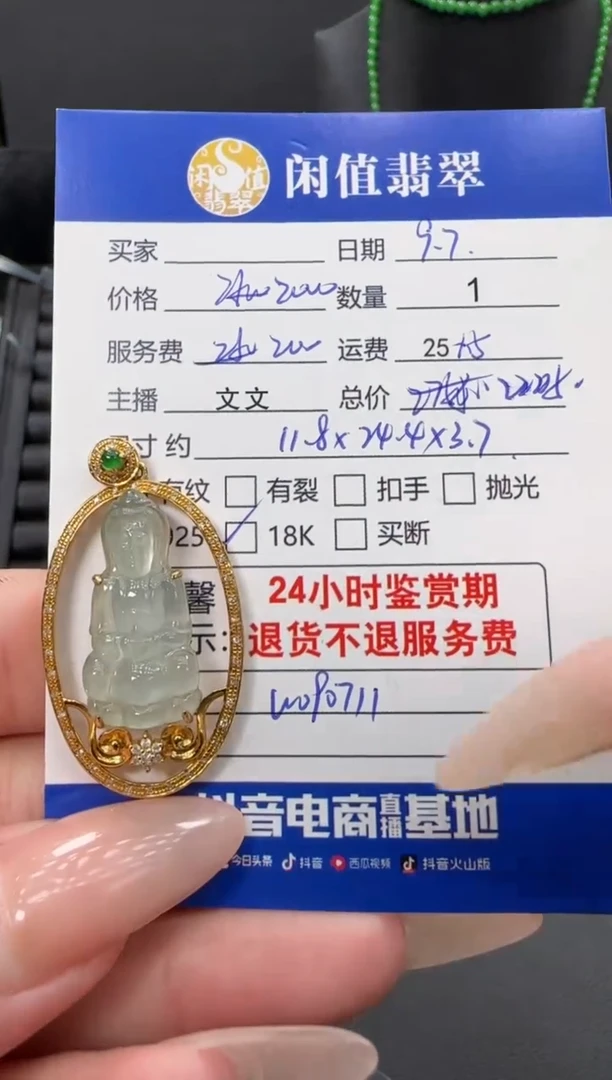 闲值翡翠
闲值翡翠
买家 日期 9.7.
价格 2000 数量 1
服务费 200 运费 25 +5
主播 文文 总价
寸 约 11.8×24.4×3.7
有纹 有裂 扣手 抛光
925 18K 买断
馨 24小时鉴赏期
示: 退货不退服务费
wo90711
抖音电商直播基地
今日头条 抖音 西瓜视频 抖音火山版